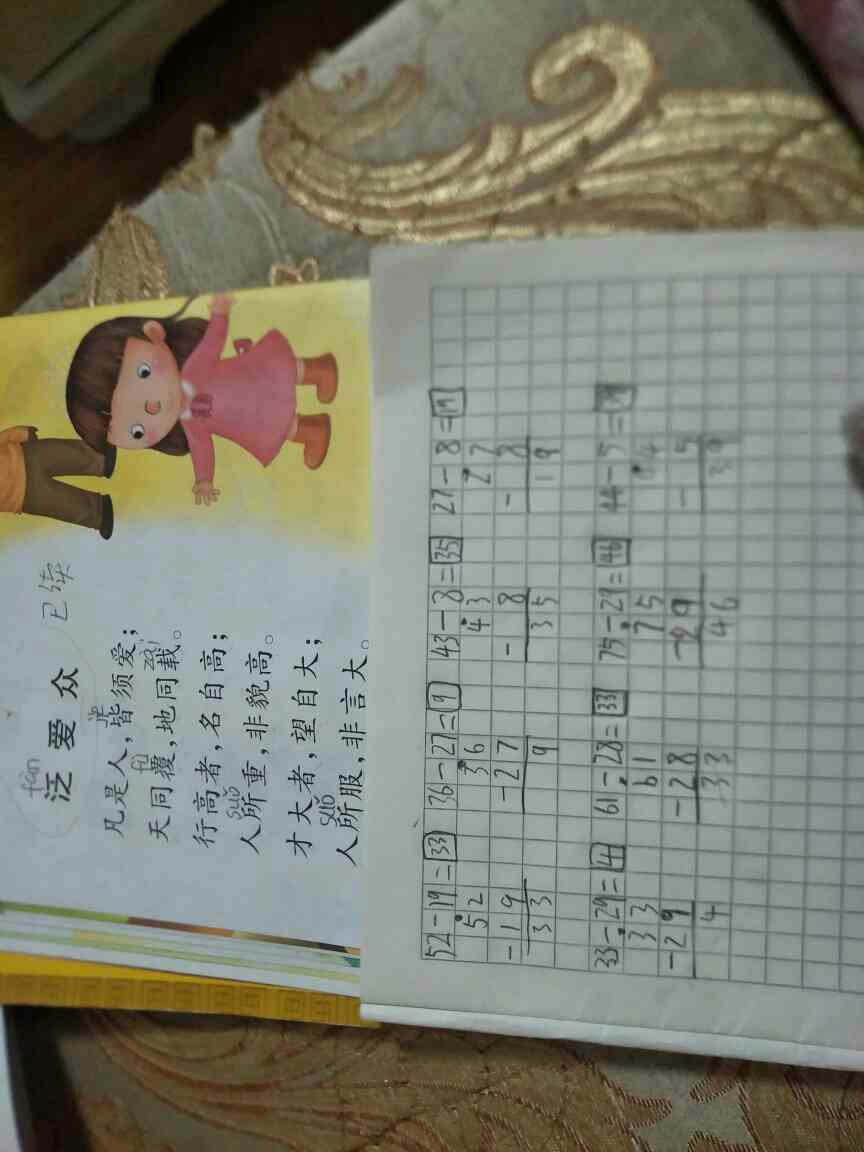 fàn
泛爱众 已读
jiē
凡是人，皆须爱；
fù zài
天同覆，地同载。
行高者，名自高；
suǒ
人所重，非貌高。
才大者，望自大；
suǒ
人所服，非言大。
52-19=33 36-27=9 43-8=35 27-8=19
52 36 43 27
-19 -27 -8 -8
33 9 35 19
33-29=4 61-28=33 75-29=46 44-5=
33 61 75 44
-29 -28 -29 -5
4 33 46 39